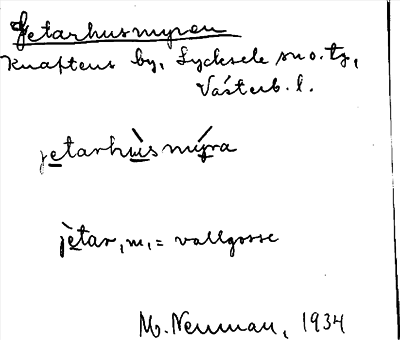 Jetarhusmyran
Knaftens by, Lycksele sn o. tg,
Västerb. l.
jetarhùsmýra
jètar, m, = vallgosse
M. Neuman, 1934